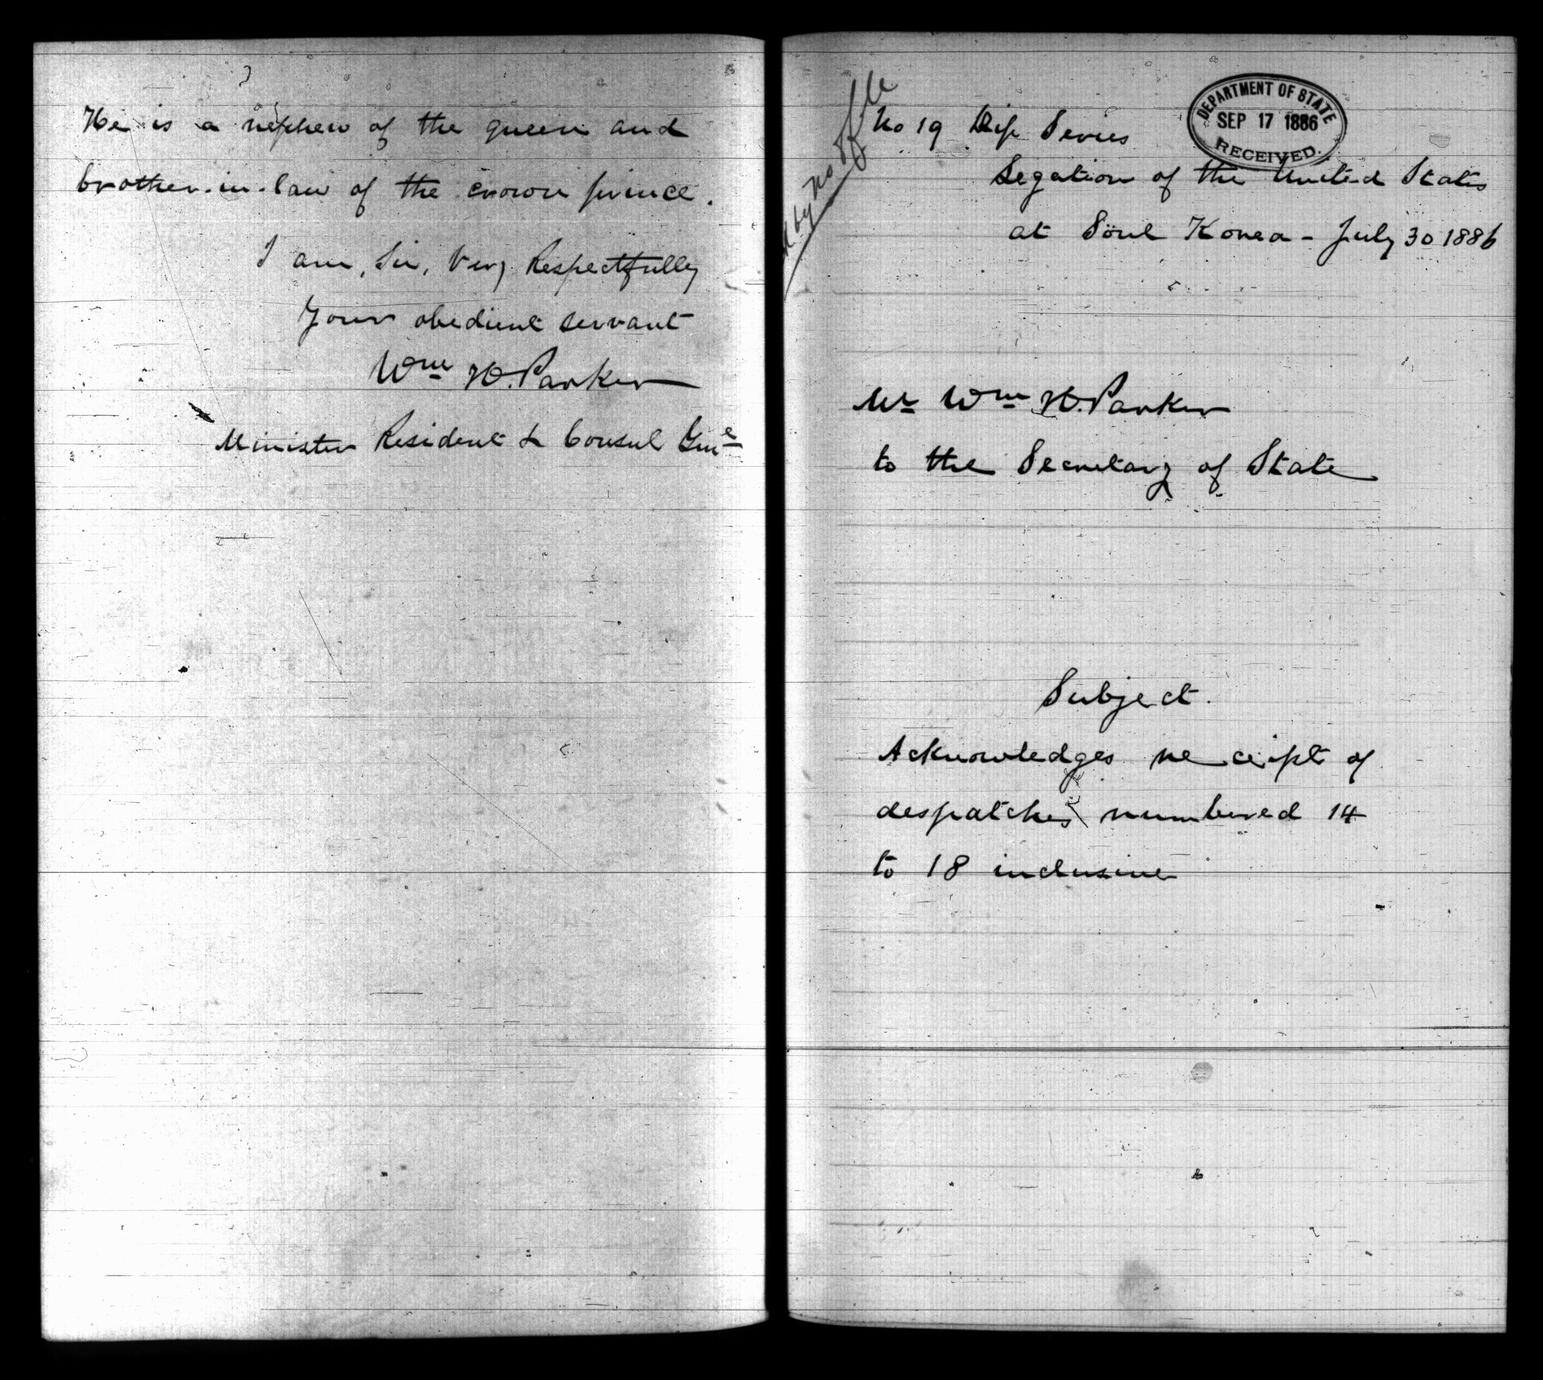 He is a nephew of the queen and
brother-in-law of the crown prince.
I am, Sir, Very Respectfully
Your obedient servant
Wm H. Parker
Minister Resident & Consul Genl
No 19 Dip Series
DEPARTMENT OF STATE
SEP 17 1886
RECEIVED.
Legation of the United States
at Söul Korea - July 30 1886
Mr Wm H. Parker
to the Secretary of State
Subject.
Acknowledges receipt of
despatches numbered 14
to 18 inclusive